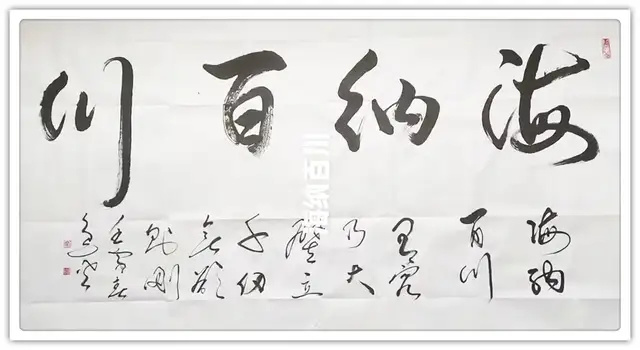 海纳百川
海纳
百川
有容
乃大
壁立
千仞
无欲
则刚
壬寅春